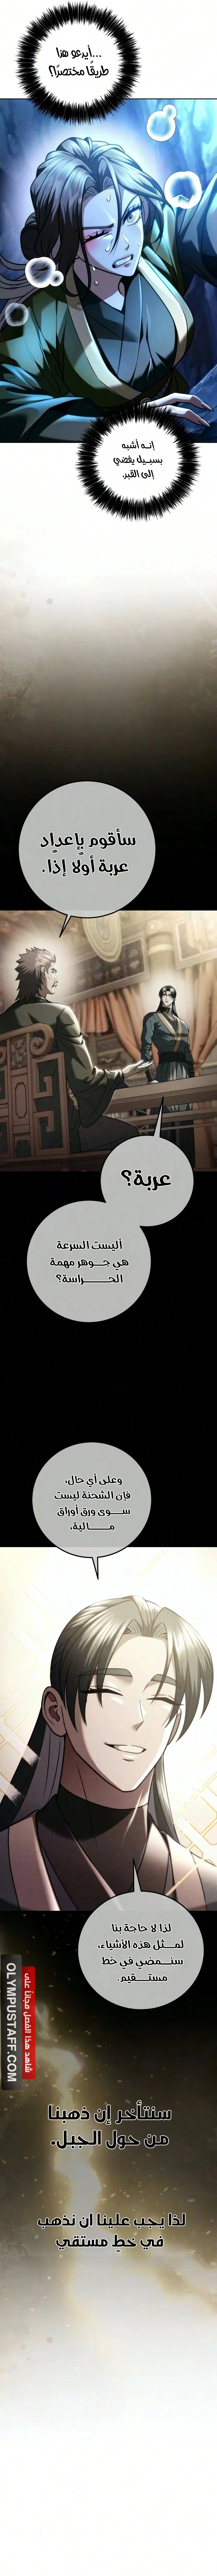 ...أيدعو هذا
طريقًا مختصرًا؟
إنـه أشبه
بسبـيل يفضي
إلى القبر.
سأقوم بإعداد
عربة أولًا إذًا.
عربة؟
أليست السرعة
هي جـوهر مهمة
الحـــراسة؟
وعلى أي حال،
فإن الشحنة ليست
ســوى ورق أوراق
مـــالية،
لذا لا حاجة بنا
لمـثل هذه الأشياء،
سنـمضي في خط
مستـــقيم.
شاهد هذا الفصل مجاناً على
OLYMPUSTAFF.COM
سنتأخر إن ذهبنا
من حول الجبل.
لذا يجب علينا ان نذهب
في خطٍ مستقي